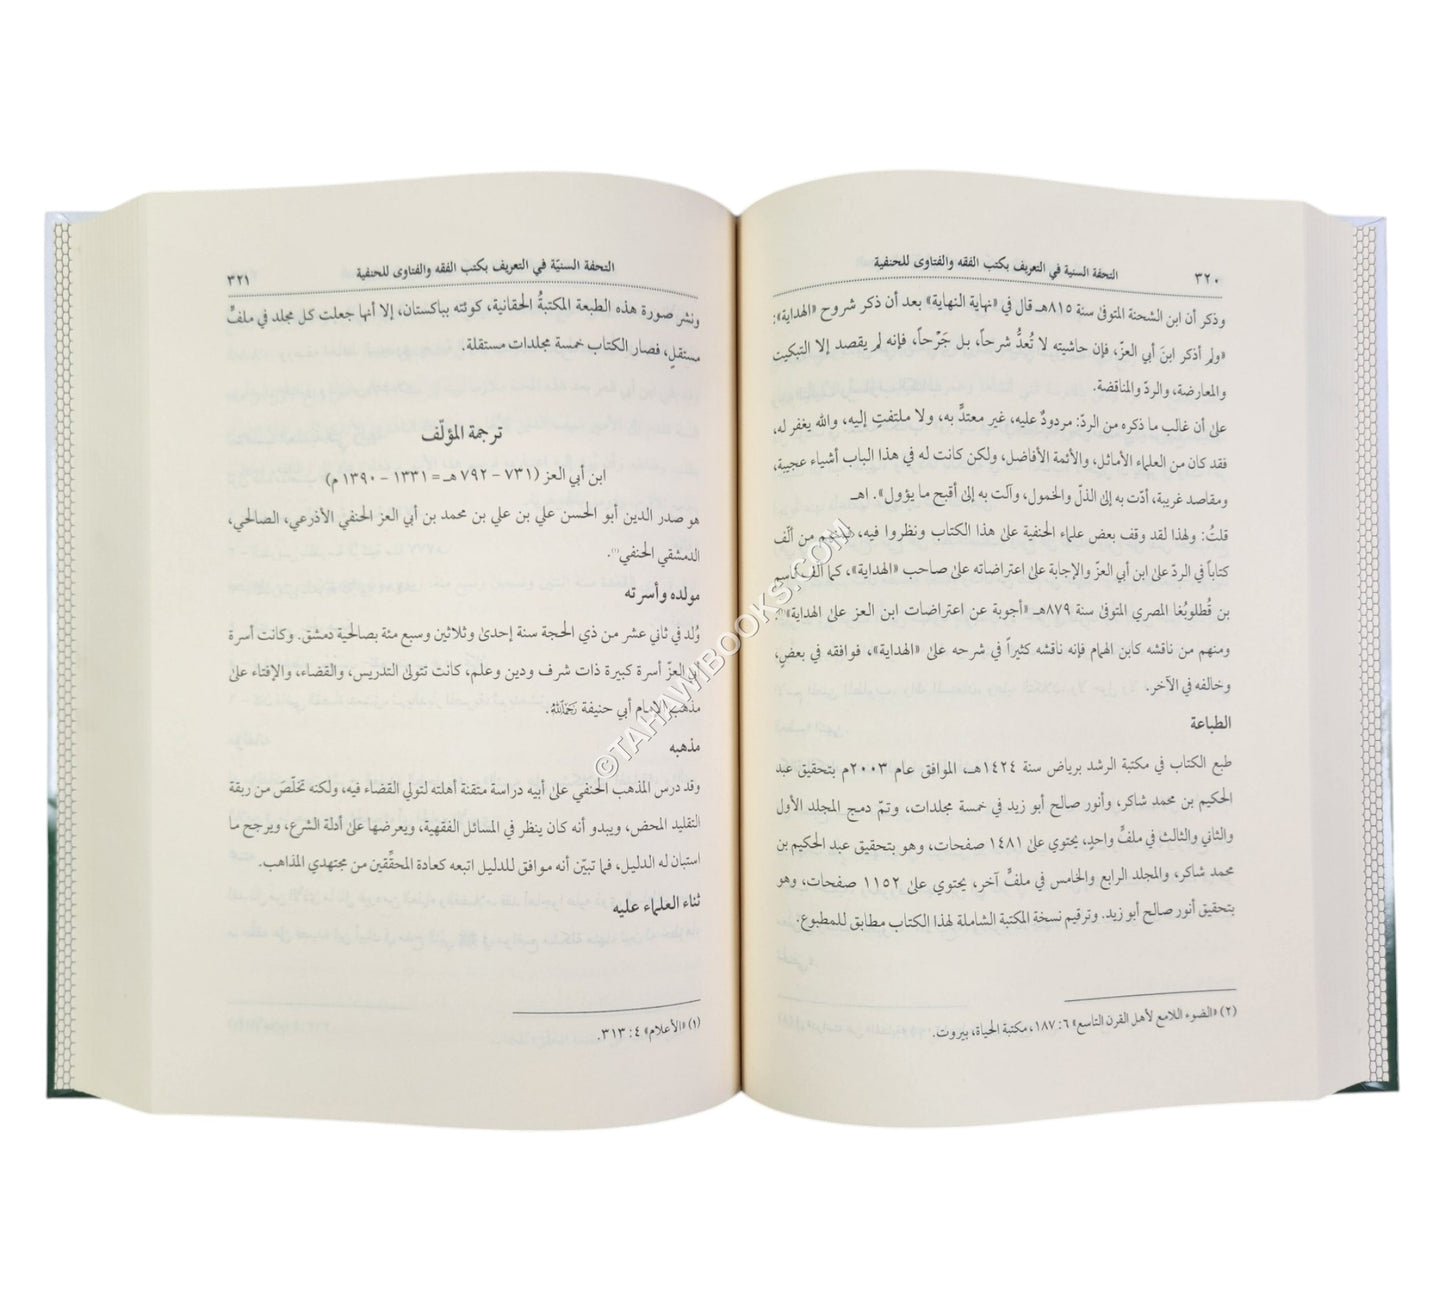 ٣٢٠ التحفة السنية في التعريف بكتب الفقه والفتاوى للحنفية
وذكر أن ابن الشحنة المتوفى سنة ٨١٥هـ قال في «نهاية النهاية» بعد أن ذكر شروح «الهداية»:
«ولم أذكر ابنَ أبي العزّ، فإن حاشيته لا تُعدُّ شرحاً، بل جَرْحاً، فإنه لم يقصد إلا التبكيت
والمعارضة، والردّ والمناقضة.
على أن غالب ما ذكره من الردّ: مردودٌ عليه، غير معتدٍّ به، ولا ملتفتٍ إليه، والله يغفر له،
فقد كان من العلماء الأماثل، والأئمة الأفاضل، ولكن كانت له في هذا الباب أشياء عجيبة،
ومقاصد غريبة، أدّت به إلى الذلّ والخمول، وآلت به إلى أقبح ما يؤول». اهـ
قلتُ: ولهذا لقد وقف بعض علماء الحنفية على هذا الكتاب ونظروا فيه، فمنهم من ألّف
كتاباً في الردّ على ابن أبي العزّ والإجابة على اعتراضاته على صاحب «الهداية»، كما ألف قاسم
بن قُطلوبُغا المصري المتوفى سنة ٨٧٩هـ «أجوبة عن اعتراضات ابن العز على الهداية»
ومنهم من ناقشه كابن الهمام فإنه ناقشه كثيراً في شرحه على «الهداية»، فوافقه في بعضٍ،
وخالفه في الآخر.
الطباعة
طبع الكتاب في مكتبة الرشد برياض سنة ١٤٢٤هـ، الموافق عام ٢٠٠٣م بتحقيق عبد
الحكيم بن محمد شاكر، وأنور صالح أبو زيد في خمسة مجلدات، وتمّ دمج المجلد الأول
والثاني والثالث في ملفٍّ واحدٍ، يحتوي على ١٤٨١ صفحات، وهو بتحقيق عبد الحكيم بن
محمد شاكر، والمجلد الرابع والخامس في ملفٍّ آخر، يحتوي على ١١٥٢ صفحات، وهو
بتحقيق أنور صالح أبو زيد. وترقيم نسخة المكتبة الشاملة لهذا الكتاب مطابق للمطبوع.
(٢) «الضوء اللامع لأهل القرن التاسع» ٦: ١٨٧، مكتبة الحياة، بيروت.
التحفة السنيّة في التعريف بكتب الفقه والفتاوى للحنفية ٣٢١
ونشر صورة هذه الطبعة المكتبةُ الحقانية، كوئته بباكستان، إلا أنها جعلت كل مجلد في ملفٍّ
مستقلٍ، فصار الكتاب خمسة مجلدات مستقلة.
ترجمة المؤلّف
ابن أبي العز (٧٣١ – ٧٩٢ هـ = ١٣٣١ – ١٣٩٠ م)
هو صدر الدين أبو الحسن علي بن علي بن محمد بن أبي العز الحنفي الأذرعي، الصالحي،
الدمشقي الحنفي(١).
مولده وأسرته
وُلد في ثاني عشر من ذي الحجة سنة إحدى وثلاثين وسبع مئة بصالحية دمشق. وكانت أسرة
أبي العزّ أسرة كبيرة ذات شرف ودين وعلم، كانت تتولى التدريس، والقضاء، والإفتاء على
مذهب الإمام أبي حنيفة رَحِمَهُ اللهُ.
مذهبه
وقد درس المذهب الحنفي على أبيه دراسة متقنة أهلته لتولي القضاء فيه، ولكنه تخلّصَ من ربقة
التقليد المحض، ويبدو أنه كان ينظر في المسائل الفقهية، ويعرضها على أدلة الشرع، ويرجح ما
استبان له الدليل، فما تبيّن أنه موافق للدليل اتبعه كعادة المحقّقين من مجتهدي المذاهب.
ثناء العلماء عليه
(١) «الأعلام» ٤: ٣١٣.
©TAHAWIBOOKS.COM